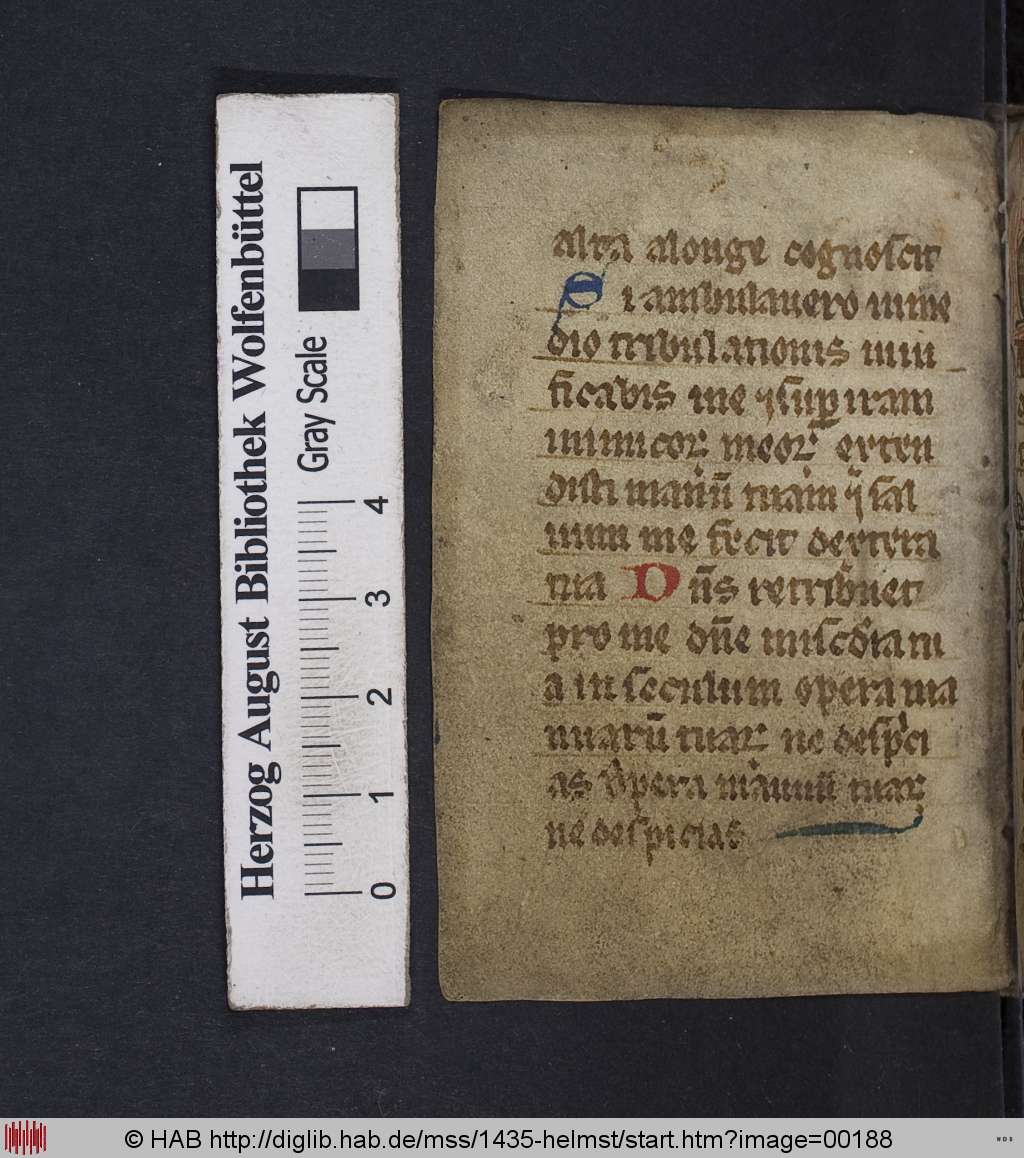 Herzog August Bibliothek Wolfenbüttel
Gray Scale
4
3
2
1
0
alta alonge cognoscit
Si ambulauero in me
dio tribulationis uiui
ficabis me ⁊ sup iram
inimicoꝝ meoꝝ exten
disti manū tuam ⁊ sal
uum me fecit dextera
tua Dn̄s retribuet
pro me dn̄e misc̄dia tu
a in seculum opera ma
nuarū tuaꝝ ne despici
as Opera manuū tuaꝝ
ne despicias
© HAB http://diglib.hab.de/mss/1435-helmst/start.htm?image=00188